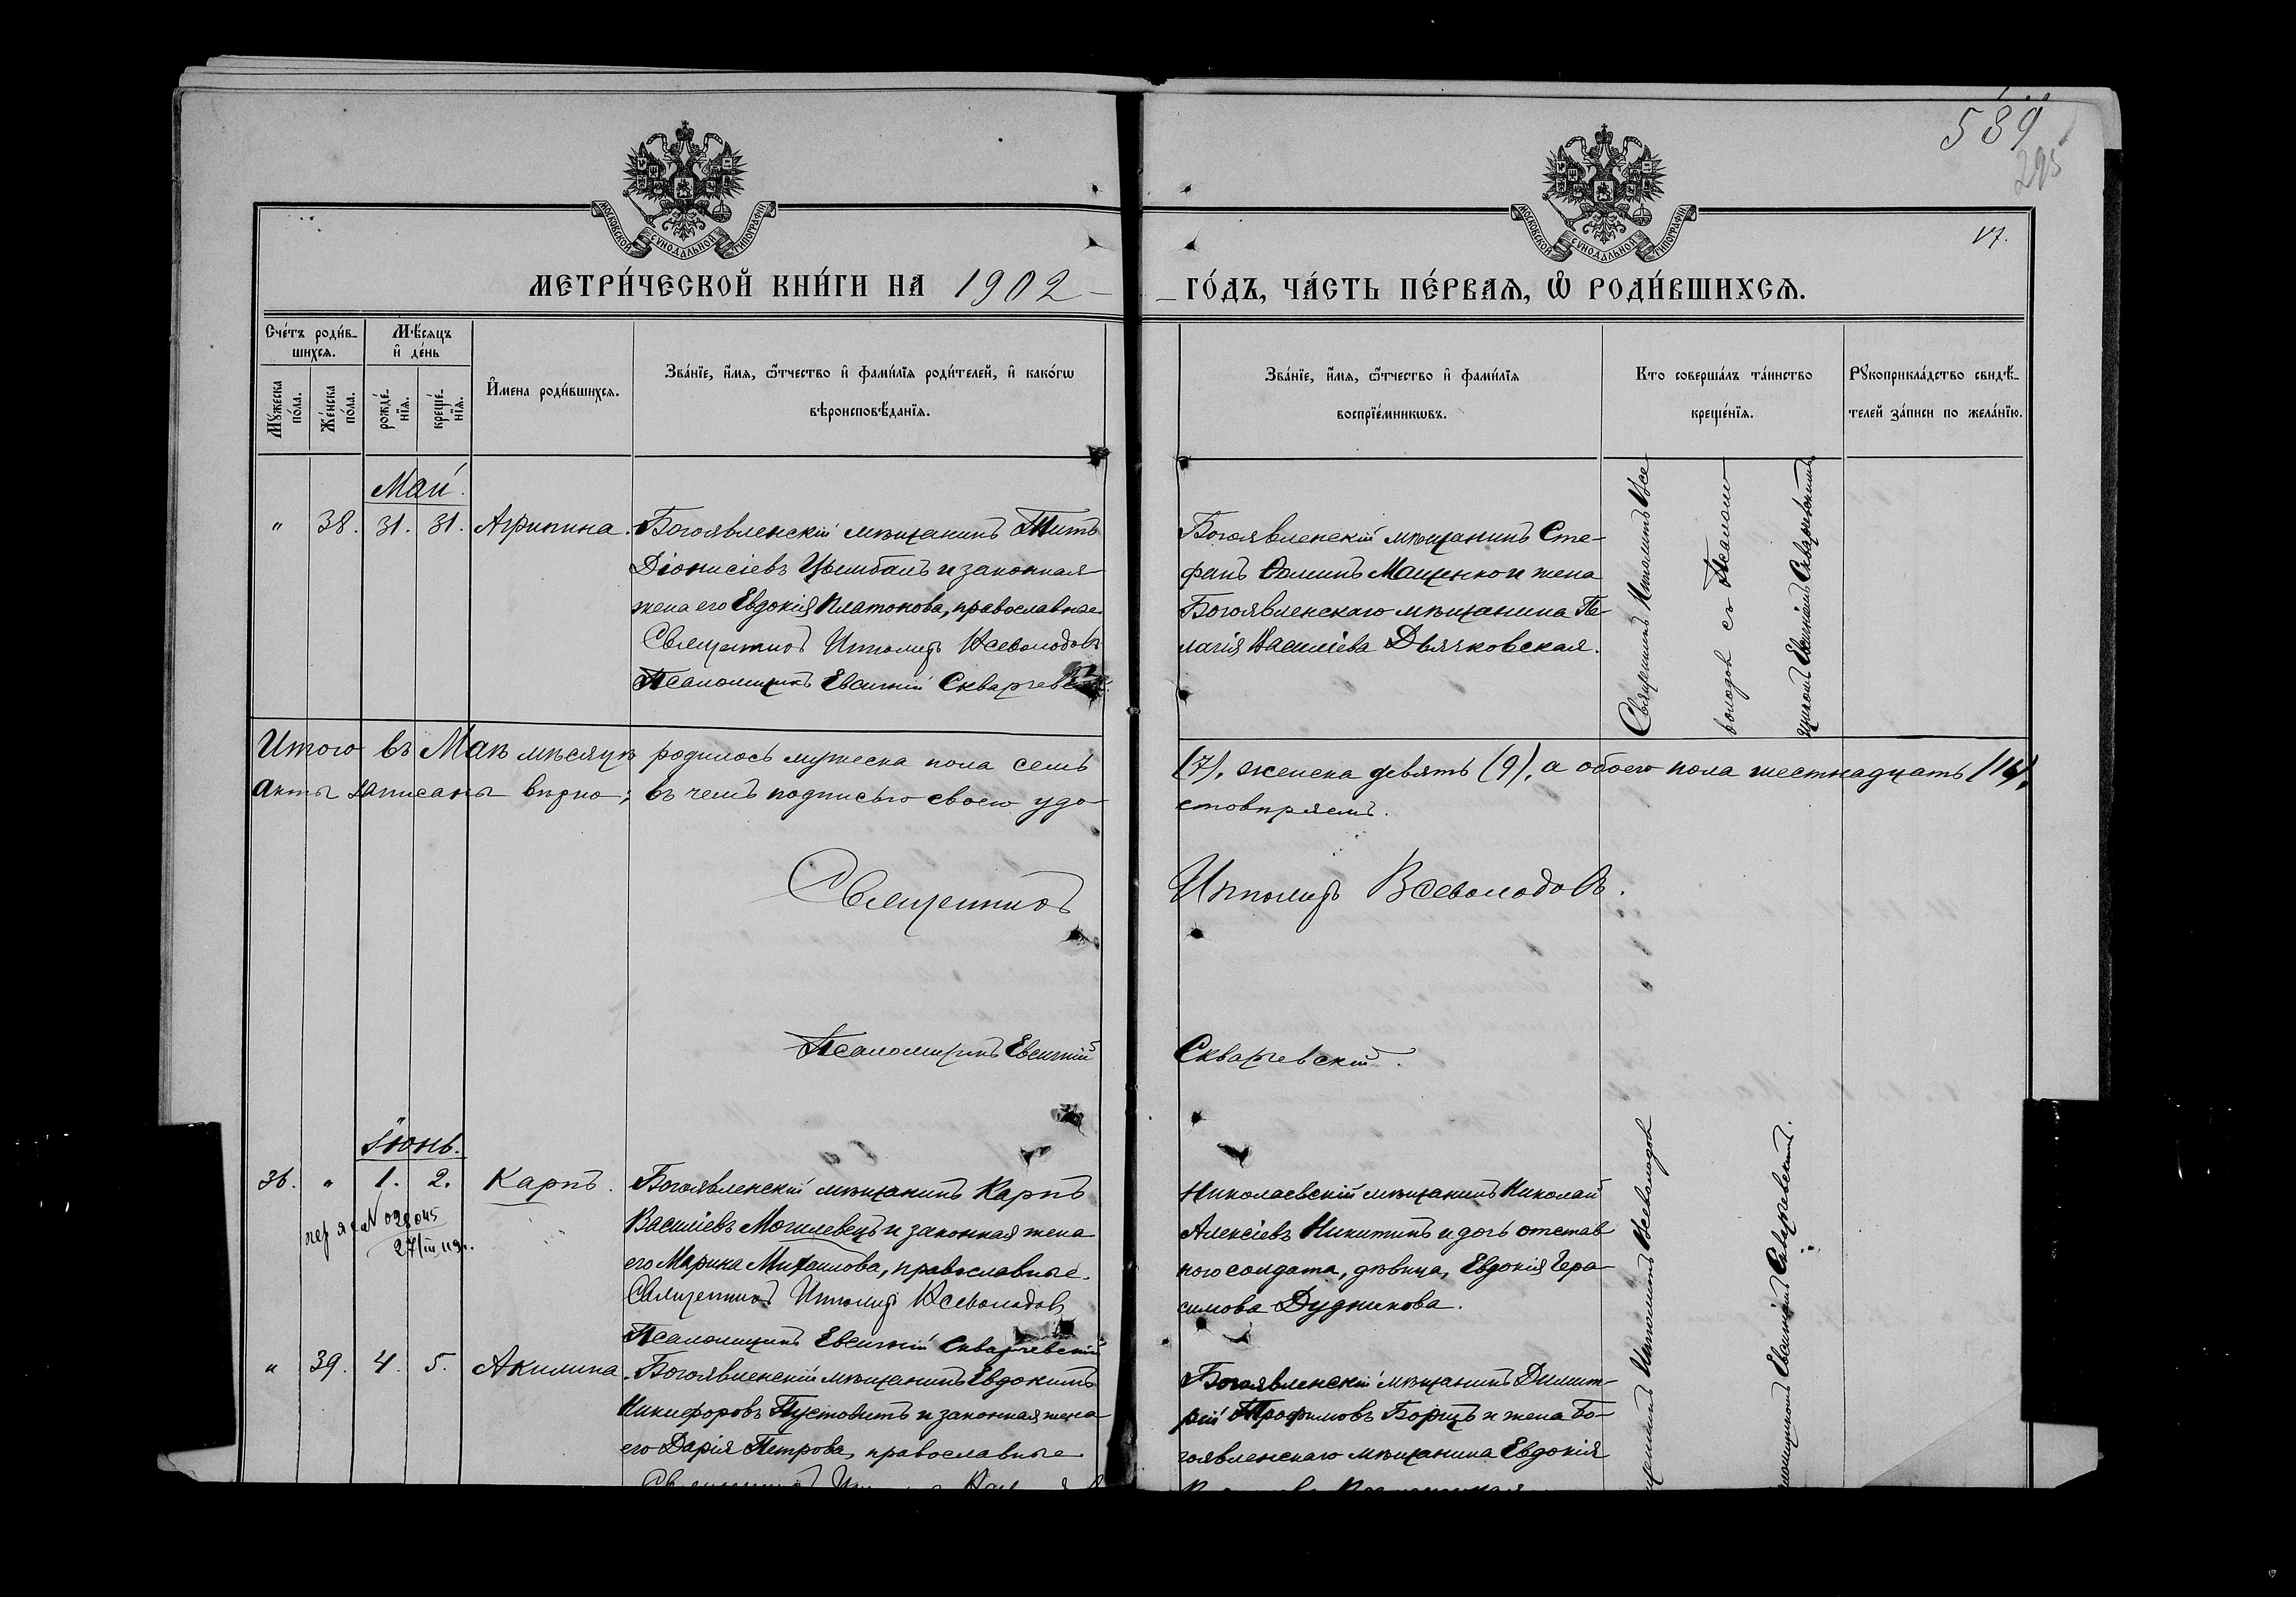 589
295
МОСКОВСКОЙ СУНОДАЛЬНОЙ ТИПОГРАФІИ
МОСКОВСКОЙ СУНОДАЛЬНОЙ ТИПОГРАФІИ
17.
МЕТРИ́ЧЕСКОЙ КНИ́ГИ НА 1902
ГО́ДЪ, ЧА́СТЬ ПЕ́РВАѦ, Ѡ РОДИ́ВШИХСѦ.
Сче́тъ роди́в-
шихсѧ.
Мѣ́сѧцъ
и҆ де́нь
Мꙋ́жеска
по́ла.
Же́нска
по́ла.
рожде́-
нїѧ.
креще́-
нїѧ.
И҆мена роди́вшихсѧ.
Зва́нїе, и҆́мѧ, ѻ҆́тчество и҆ фами́лїѧ роди́телей, и҆ како́гѡ
вѣроисповѣ́данїѧ.
Зва́нїе, и҆́мѧ, ѻ҆́тчество и҆ фами́лїѧ
воспрїе́мникѡвъ.
Кто соверша́лъ та́инство
креще́нїѧ.
Рꙋкоприкла́дство свидѣ́-
телей за́писи по жела́нїю.
Май.
" 38. 31. 31. Агрипина. Богоявленскій мѣщанинъ Титъ
Діонисіевъ Цымбалъ и законная
жена его Евдокія Платонова, православные.
Священникъ Ипполитъ Всеволодовъ
Псаломщикъ Евсигній Скваржевскій.
Богоявленскій мѣщанинъ Сте-
фанъ Ѳоминъ Мащенко и жена
Богоявленскаго мѣщанина Пе-
лагія Василіева Дьячковская.
Священникъ Ипполитъ Все-
володовъ съ Псалом-
щикомъ Евсигніемъ Скваржевскимъ.
Итого въ Маѣ мѣсяцѣ родилось мужеска пола семь
(7), женска девять (9), а обоего пола шестнадцать (16).
Акты записаны вѣрно; въ чемъ подписью своею удо-
стовѣряемъ.
Священникъ Ипполитъ Всеволодовъ.
Псаломщикъ Евсигній Скваржевскій.
Іюнь.
36. " 1. 2. Карпъ. Богоявленскій мѣщанинъ Карпъ
Василіевъ Могилевецъ и законная жена
его Марина Михаилова, православные.
Священникъ Ипполитъ Всеволодовъ
Псаломщикъ Евсигній Скваржевскій
№ 028045
27/III
Николаевскій мѣщанинъ Николай
Алексіевъ Никитинъ и дочь отстав
ного солдата, дѣвица, Евдокія Гера-
симова Дудникова.
" 39. 4. 5. Акилина. Богоявленскій мѣщанинъ Евдокимъ
Никифоровъ Пустовитъ и законная жена
его Дарія Петрова, православные
Богоявленскій мѣщанинъ Димит-
рій Трофимовъ Борщъ и жена Бо-
гоявленскаго мѣщанина Евдокія
Ипполитъ Всеволодовъ
Евсигніемъ Скваржевскимъ.